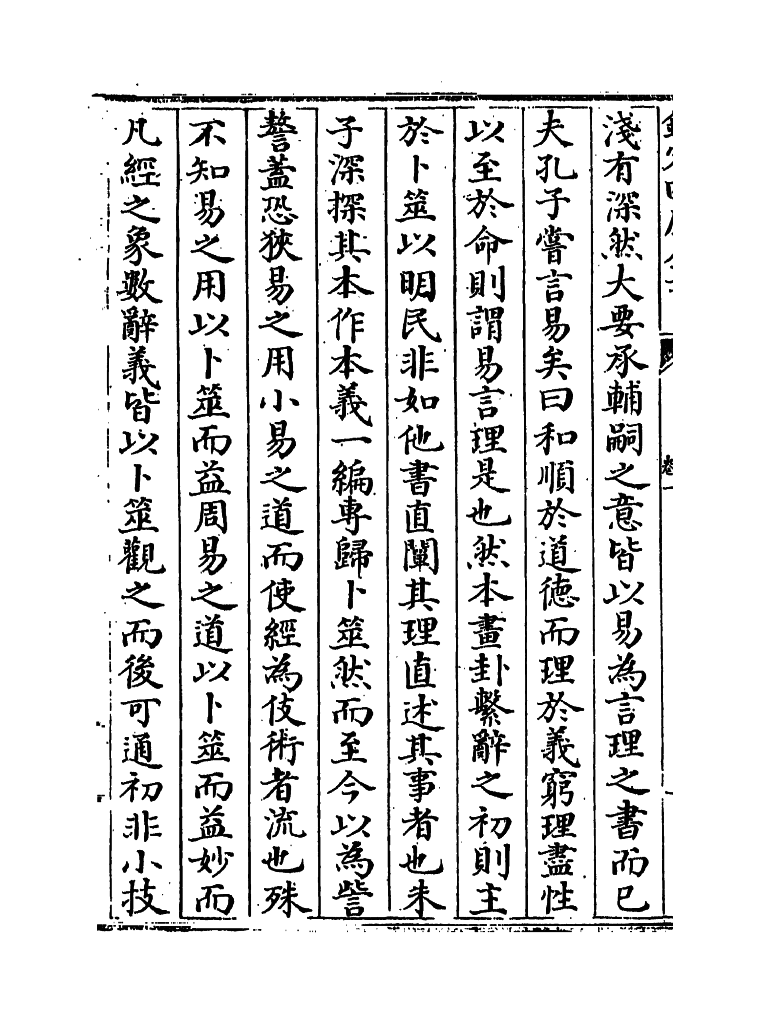 淺有深然大要承輔嗣之意皆以易為言理之書而已
夫孔子嘗言易矣曰和順於道德而理於義窮理盡性
以至於命則謂易言理是也然本畫卦繫辭之初則主
於卜筮以明民非如他書直闡其理直述其事者也朱
子深探其本作本義一編專歸卜筮然而至今以為訾
謷蓋恐狹易之用小易之道而使經為伎術者流也殊
不知易之用以卜筮而益周易之道以卜筮而益妙而
凡經之象數辭義皆以卜筮觀之而後可通初非小技